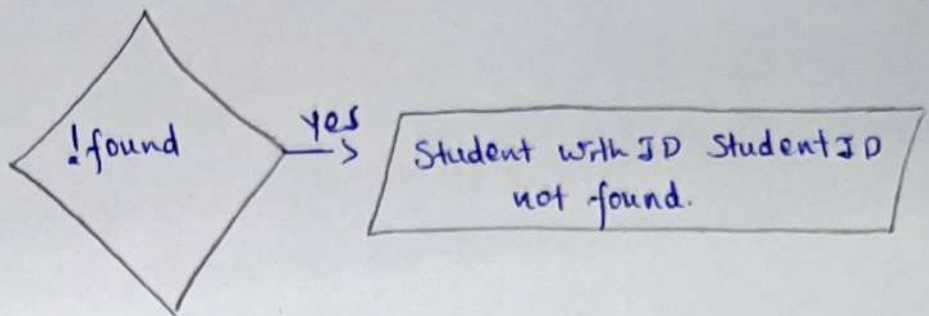 !found
yes
Student with ID StudentID
not found.